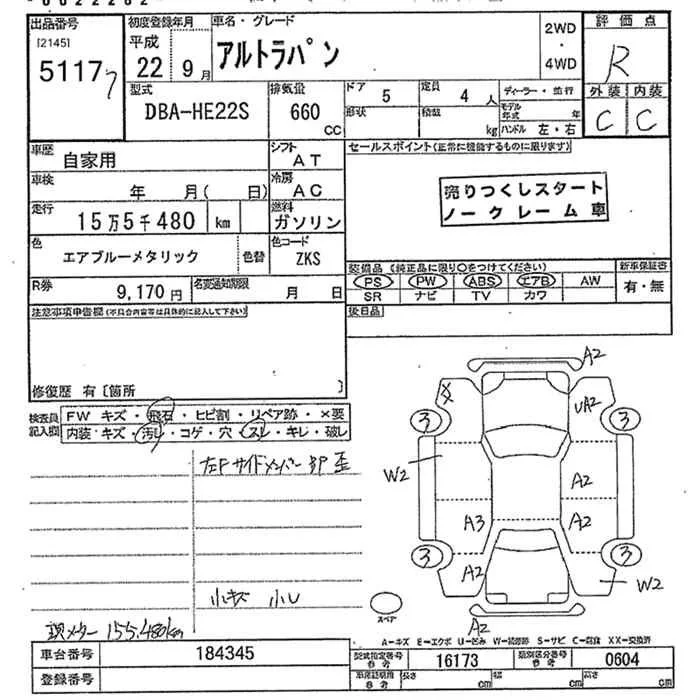 出品番号
[2145]
5117 7
初度登録年月
平成
22 9月
車名・グレード
アルトラパン
2WD
・
4WD
評価点
R
外装 内装
C C
型式
DBA-HE22S
排気量
660
CC
ドア 5
形状
定員 4 人
積載 kg
ディーラー・並行
モデル年式 年
ハンドル 左・右
車歴 自家用
シフト AT
セールスポイント(正常に機能するものに限ります)
車検 年 月( 日)
冷房 AC
売りつくしスタート
ノークレーム車
走行 15万5千480 km
燃料 ガソリン
色 エアブルーメタリック 色替
色コード ZKS
R券 9,170円
名変通知期限 月 日
装備品(純正品に限り○をつけてください)
新車保証書
PS PW ABS エアB AW
有・無
SR ナビ TV カワ
注意事項申告欄(不具合内容等は具体的に記入して下さい)
後日品
修復歴 有〔箇所 〕
検査員
記入欄
FW キズ・飛石・ヒビ割・リペア跡・×要
内装・キズ・汚レ・コゲ・穴・スレ・キレ・破レ
左Fサイドメンバー部歪
小キズ 小U
現メーター155,480km
A2
UA2
3
3
W2
A2
A3
A2
3
3
A2
W2
スペア
A2
A-キズ E-エクボ U-凹み W-補修跡 S-サビ C-腐食 XX-交換済
車台番号 184345
型式指定番号
参考
16173
類別区分番号
参考
0604
登録番号
車庫証明用
参考
長さ cm
幅 cm
高さ cm